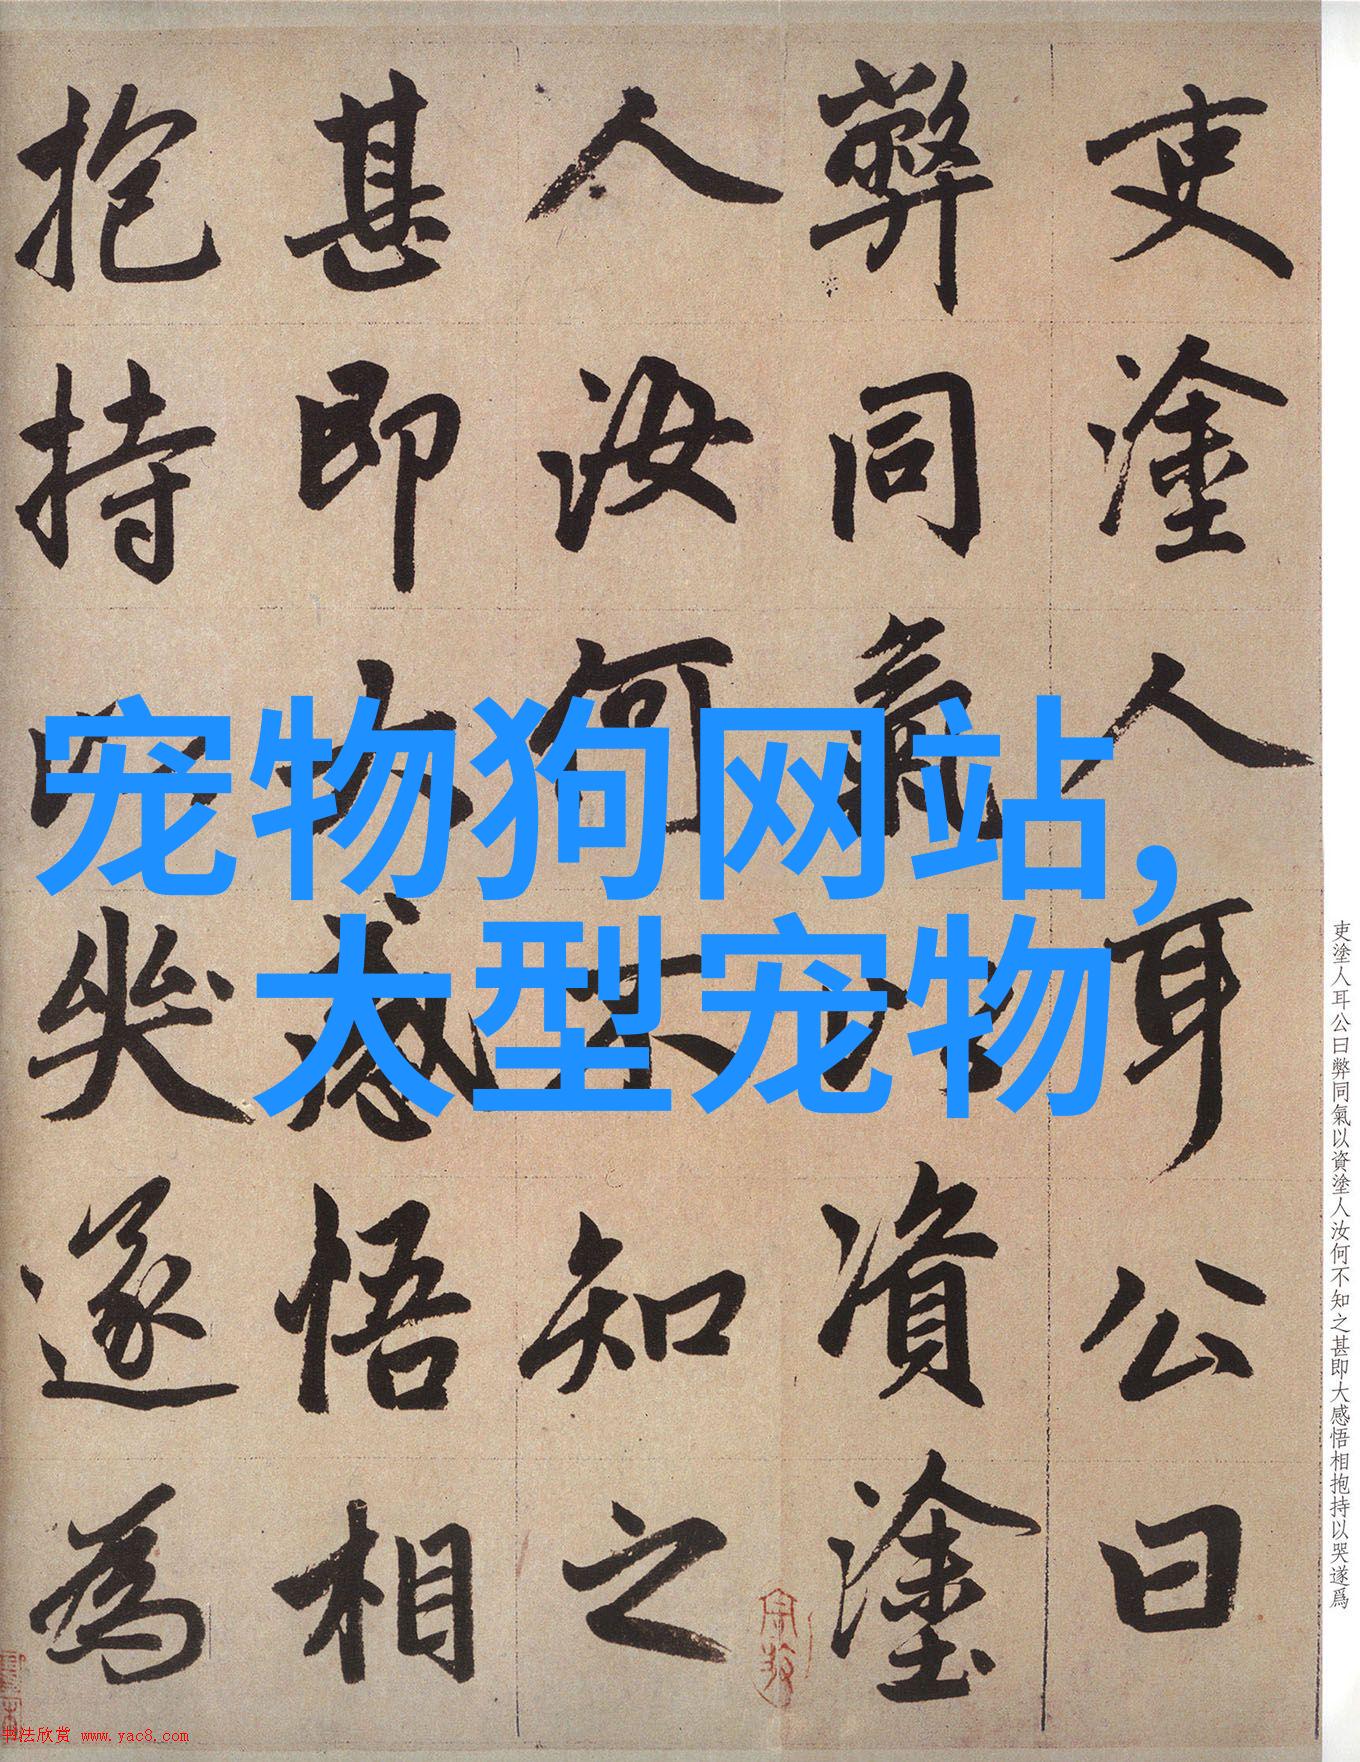 吏塗人耳公曰
弊同氣以資塗
人汝何不知之
甚即大感悟相
抱持以哭遂為
宠物狗网站,
大型宠物
吏塗人耳公曰弊同氣以資塗人汝何不知之甚即大感悟相抱持以哭遂爲
书法欣赏 www.yac8.com